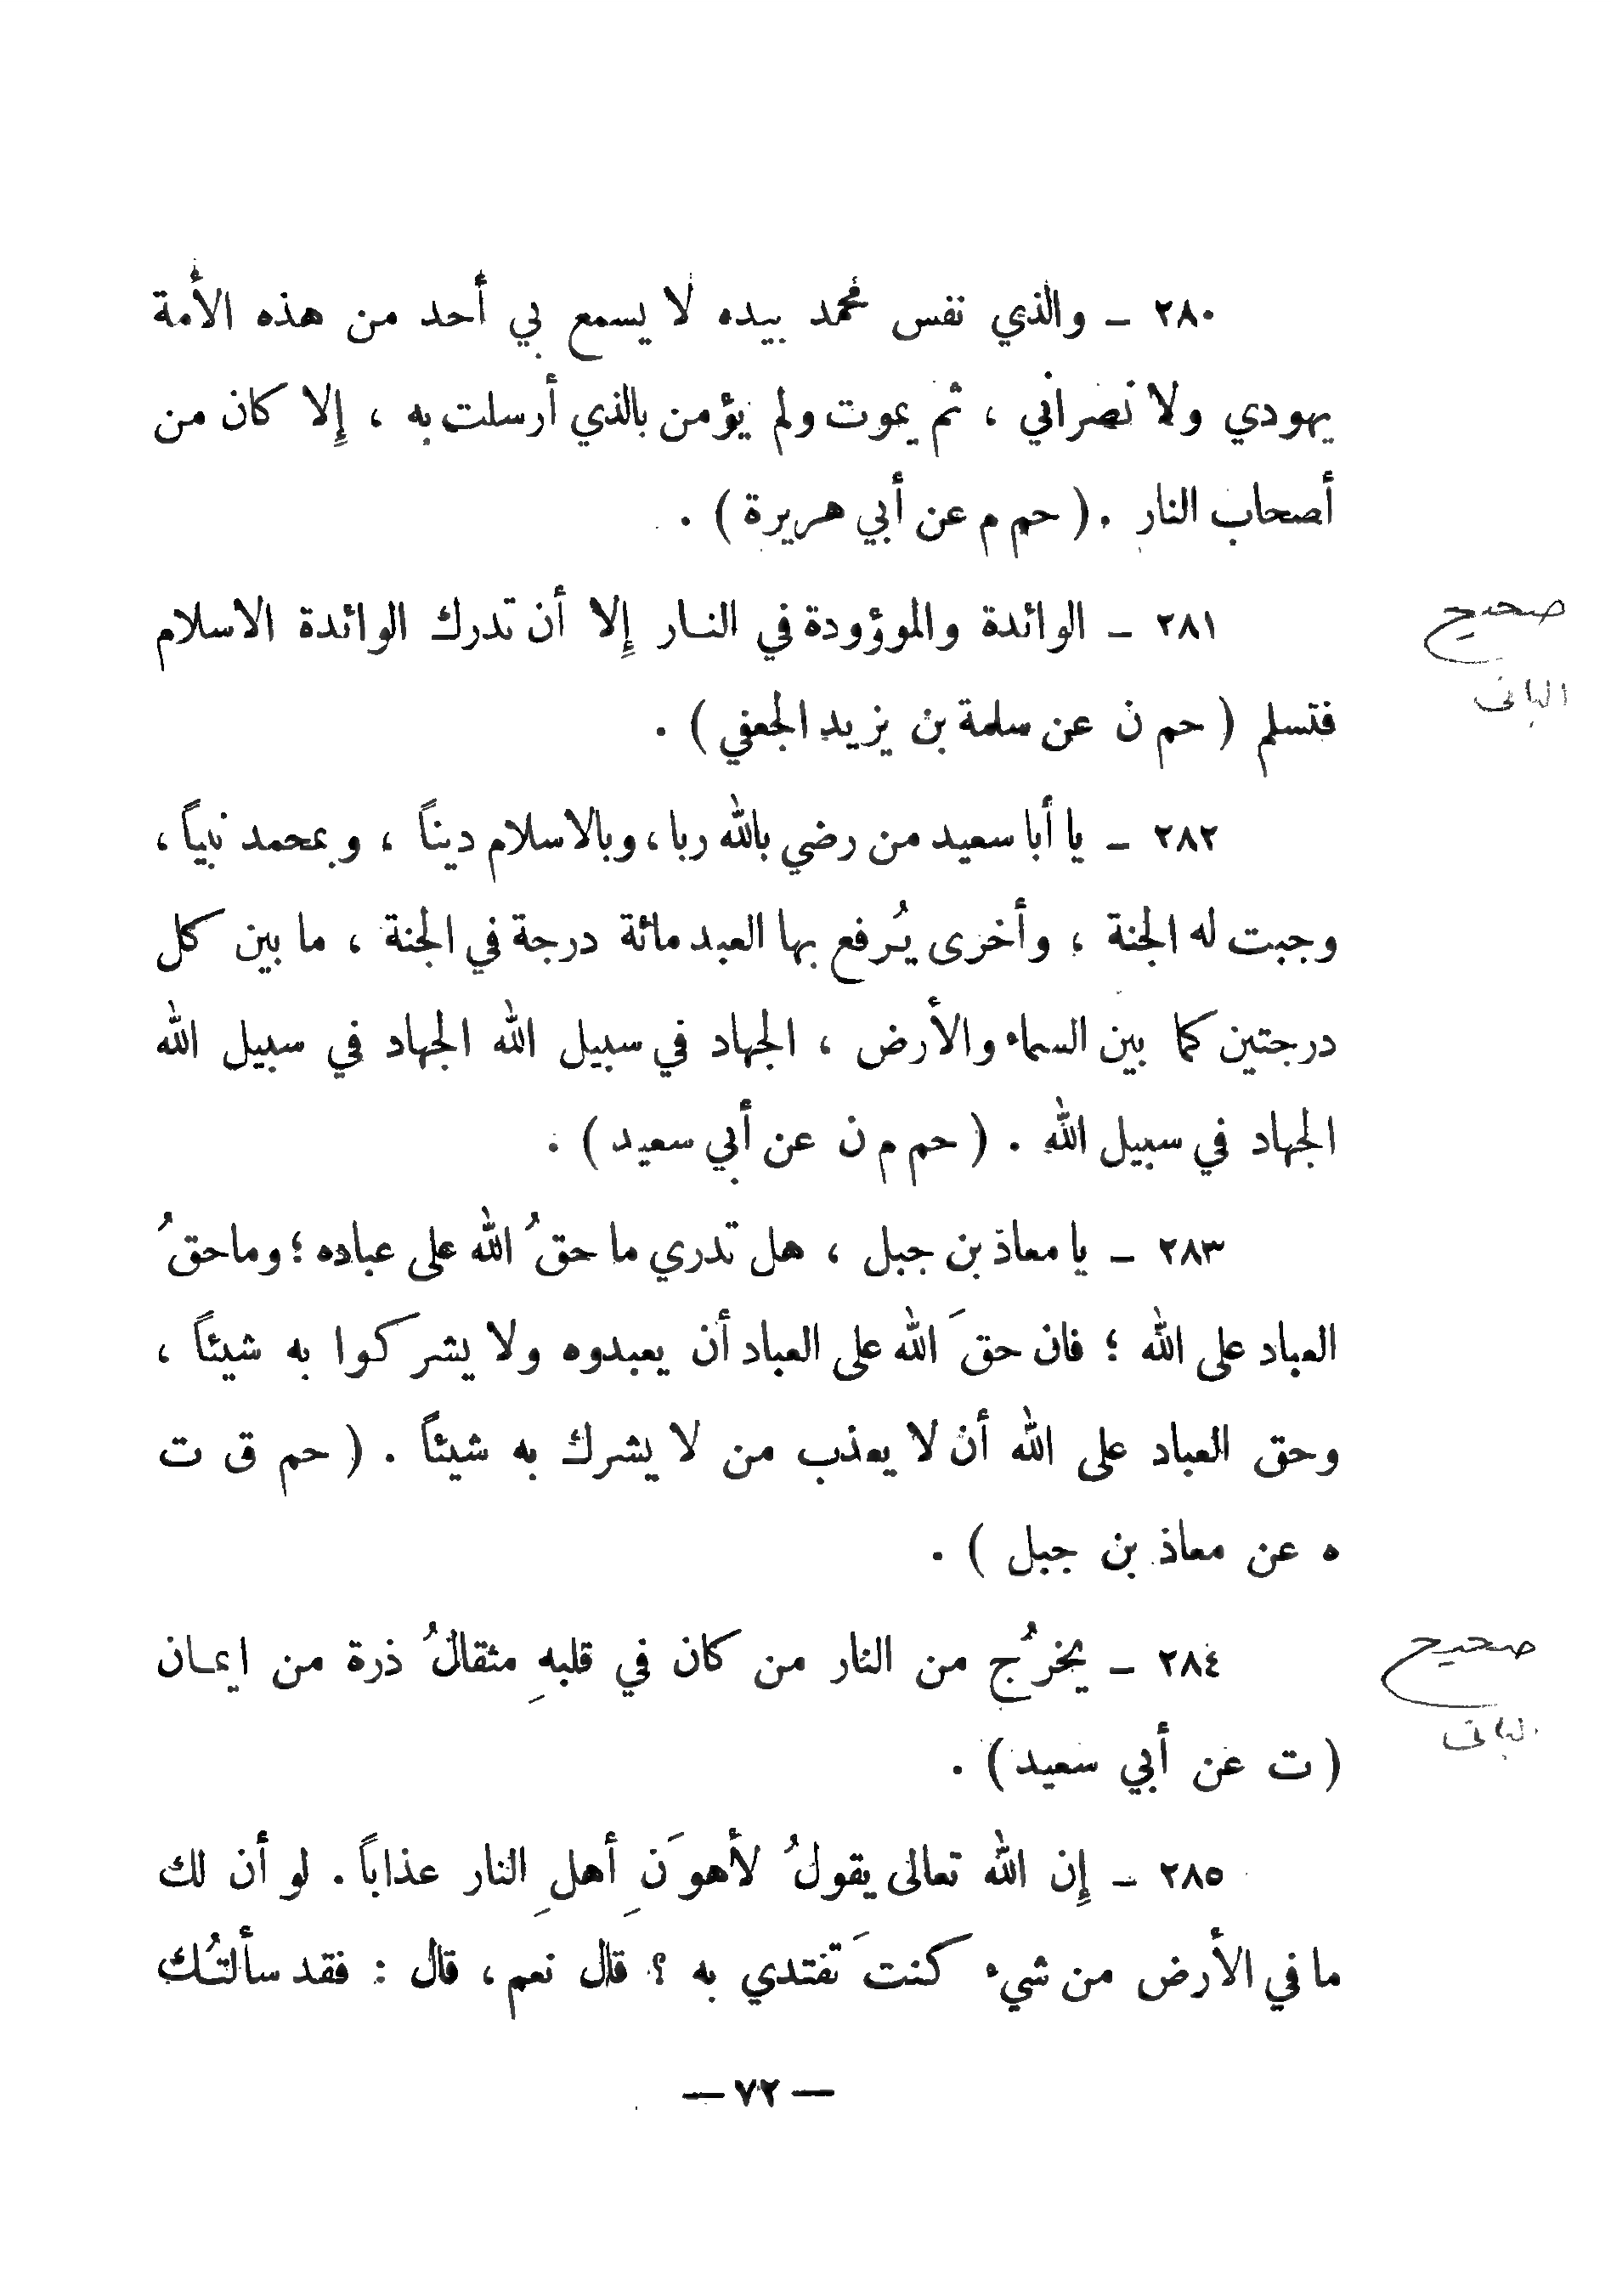 ٢٨٠ ـ والذي نفس محمد بيده لا يسمع بي أحد من هذه الأمة
يهودي ولا نصراني ، ثم يموت ولم يؤمن بالذي أرسلت به ، إِلا كان من
أصحاب النار . ( حم م عن أبي هريرة ) .
٢٨١ ـ الوائدة والموؤودة في النـار إِلا أن تدرك الوائدة الاسلام
صحيح
فتسلم ( حم ن عن سلمة بن يزيد الجعفي ) .
البانى
٢٨٢ ـ يا أبا سعيد من رضي بالله ربا ، وبالاسلام ديناً ، وبمحمد نبياً ،
وجبت له الجنة ، وأخرى يُرفع بها العبد مائة درجة في الجنة ، ما بين كل
درجتين كما بين السماء والأرض ، الجهاد في سبيل الله الجهاد في سبيل الله
الجهاد في سبيل الله . ( حم م ن عن أبي سعيد ) .
٢٨٣ ـ يا معاذ بن جبل ، هل تدري ما حقُ الله على عباده ؛ وما حقُ
العباد على الله ؛ فان حقَ الله على العباد أن يعبدوه ولا يشركوا به شيئاً ،
وحق العباد على الله أن لا يعذب من لا يشرك به شيئاً . ( حم ق ت
ه عن معاذ بن جبل ) .
٢٨٤ ـ يخرُج من النار من كان في قلبهِ مثقالُ ذرة من ايمـان
صحيح
( ت عن أبي سعيد ) .
البانى
٢٨٥ ـ إِن الله تعالى يقولُ لأهوَنِ أهلِ النار عذاباً . لو أن لك
ما في الأرض من شيء كنتَ تفتدي به ؟ قال نعم ، قال : فقد سألتُـك
— ٧٢ —